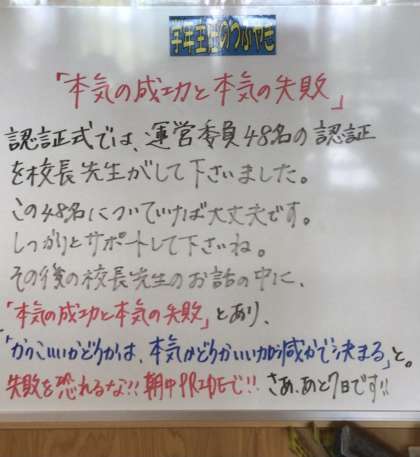 千年王生のつぶやき
「本気の成功と本気の失敗」
認証式では、運営委員48名の認証
を校長先生がして下さいました。
この48名についていけば大丈夫です。
しっかりとサポートして下さいね。
その後の校長先生のお話の中に、
「本気の成功と本気の失敗」とあり、
「かっこいいかどうかは、本気かどうかいいかげん減かで決まる」と。
失敗を恐れるな!!朝中PRIDEで!!さあ、あと7日です!!